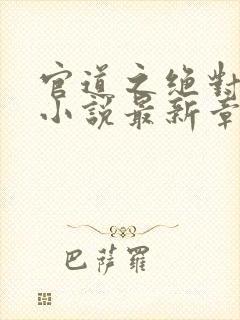 官道之絕對
小說最新章
巴薩羅